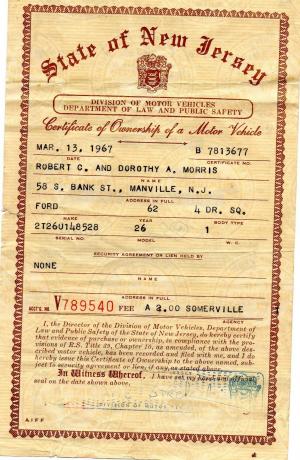 State of New Jersey
DIVISION OF MOTOR VEHICLES
DEPARTMENT OF LAW AND PUBLIC SAFETY
Certificate of Ownership of a Motor Vehicle
MAR. 13, 1967 B 7813677
DATE CERTIFICATE NO.
ROBERT C. AND DOROTHY A. MORRIS
NAME
58 S. BANK ST., MANVILLE, N.J.
ADDRESS IN FULL
FORD 62 4 DR. SQ.
MAKE YEAR BODY TYPE
2T26U148528 26 1
SERIAL NO. MODEL W. C.
SECURITY AGREEMENT OR LIEN HELD BY
NONE
NAME
ADDRESS IN FULL AGENCY
ACCT'G. NO. V789540 FEE A 2.00 SOMERVILLE
I, the Director of the Division of Motor Vehicles, Department of
Law and Public Safety of the State of New Jersey, do hereby certify
that evidence of purchase or ownership, in compliance with the pro-
visions of R.S. Title 39, Chapter 10, as amended, of the above des-
cribed motor vehicle, has been recorded and filed with me, and I do
hereby issue this Certificate of Ownership to the above named,
subject to security agreement or lien, if any, as stated above.
In Witness Whereof, I have set my hand and official
seal on the date shown above.
DIVISION OF MOTOR